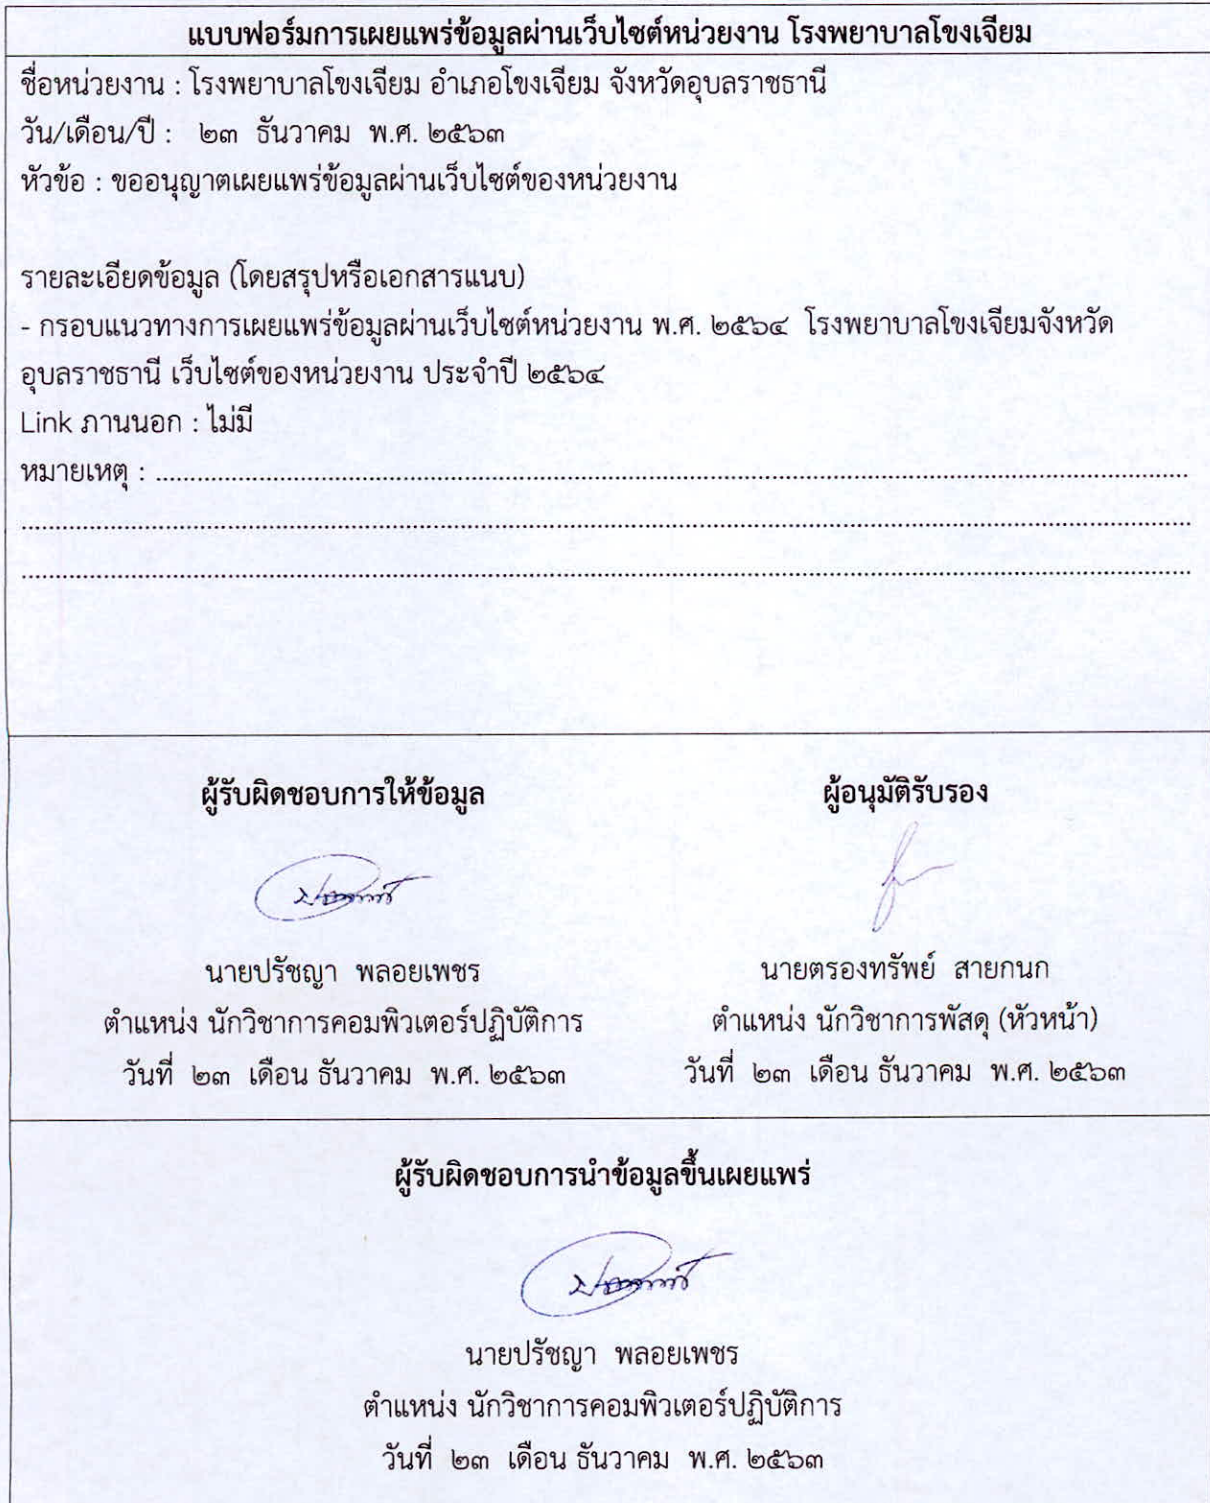 แบบฟอร์มการเผยแพร่ข้อมูลผ่านเว็บไซต์หน่วยงาน โรงพยาบาลโขงเจียม
ชื่อหน่วยงาน : โรงพยาบาลโขงเจียม อำเภอโขงเจียม จังหวัดอุบลราชธานี
วัน/เดือน/ปี : ๒๓ ธันวาคม พ.ศ. ๒๕๖๓
หัวข้อ : ขออนุญาตเผยแพร่ข้อมูลผ่านเว็บไซต์ของหน่วยงาน
รายละเอียดข้อมูล (โดยสรุปหรือเอกสารแนบ)
- กรอบแนวทางการเผยแพร่ข้อมูลผ่านเว็บไซต์หน่วยงาน พ.ศ. ๒๕๖๔ โรงพยาบาลโขงเจียมจังหวัด
อุบลราชธานี เว็บไซต์ของหน่วยงาน ประจำปี ๒๕๖๔
Link ภานนอก : ไม่มี
หมายเหตุ : ........................................................................
........................................................................
........................................................................
ผู้รับผิดชอบการให้ข้อมูล
นายปรัชญา พลอยเพชร
ตำแหน่ง นักวิชาการคอมพิวเตอร์ปฏิบัติการ
วันที่ ๒๓ เดือน ธันวาคม พ.ศ. ๒๕๖๓
ผู้อนุมัติรับรอง
นายตรองทรัพย์ สายกนก
ตำแหน่ง นักวิชาการพัสดุ (หัวหน้า)
วันที่ ๒๓ เดือน ธันวาคม พ.ศ. ๒๕๖๓
ผู้รับผิดชอบการนำข้อมูลขึ้นเผยแพร่
นายปรัชญา พลอยเพชร
ตำแหน่ง นักวิชาการคอมพิวเตอร์ปฏิบัติการ
วันที่ ๒๓ เดือน ธันวาคม พ.ศ. ๒๕๖๓